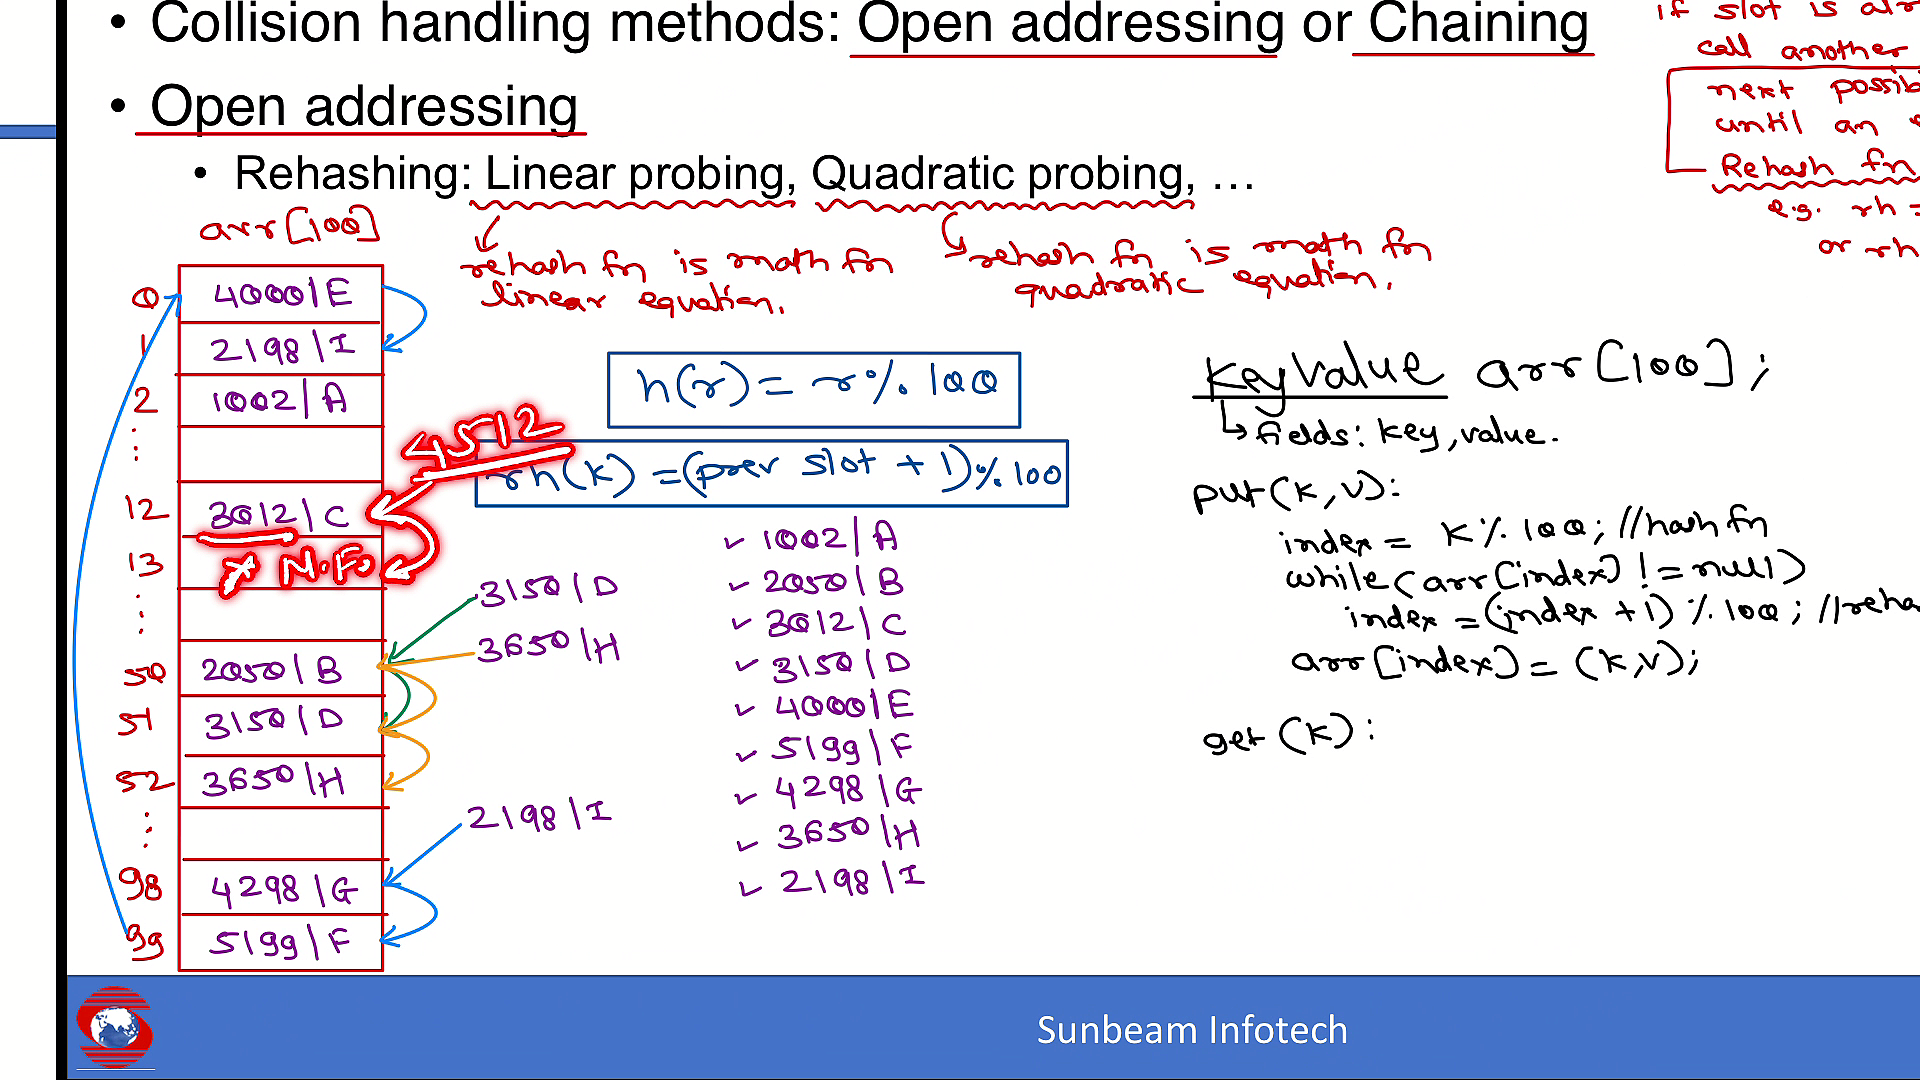 • Collision handling methods: Open addressing or Chaining
• Open addressing
• Rehashing: Linear probing, Quadratic probing, ...
if slot is
call another
next
until an
Rehash fn
e.g. rh =
or rh
arr[100]
rehash fn is math fn
linear equation.
rehash fn is math fn
quadratic equation.
0 4000|E
1 2198|I
2 1002|A
⋮
12 3012|C
13 x N.F.
⋮
50 2050|B
51 3150|D
52 3650|H
⋮
98 4298|G
99 5199|F
4512
3150|D
3650|H
2198|I
h(r) = r % 100
rh(k) = (prev slot + 1) % 100
✓ 1002|A
✓ 2050|B
✓ 3012|C
✓ 3150|D
✓ 4000|E
✓ 5199|F
✓ 4298|G
✓ 3650|H
✓ 2198|I
KeyValue arr[100];
↳ fields: key, value.
put(k,v):
index = k % 100; //hash fn
while(arr[index] != null)
index = (index + 1) % 100; //reha
arr[index] = (k,v);
get(k):
Sunbeam Infotech